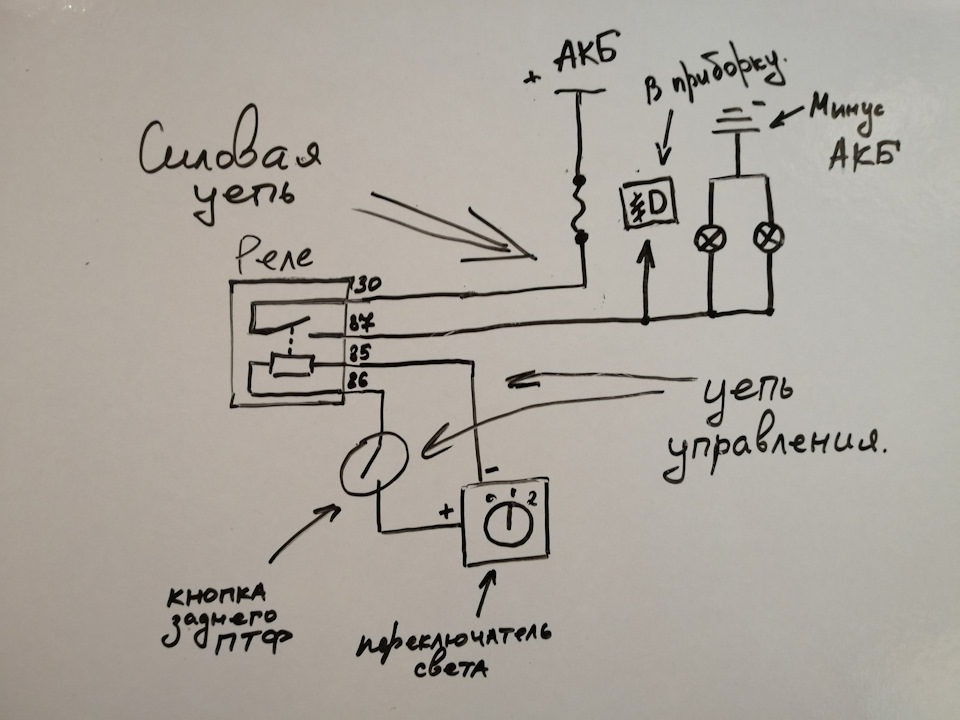 + АКБ
В приборку.
-
Минус
АКБ
Силовая
цепь
Реле
30
87
85
86
цепь
управления.
-
+
0 1 2
кнопка
заднего
ПТФ
переключатель
света